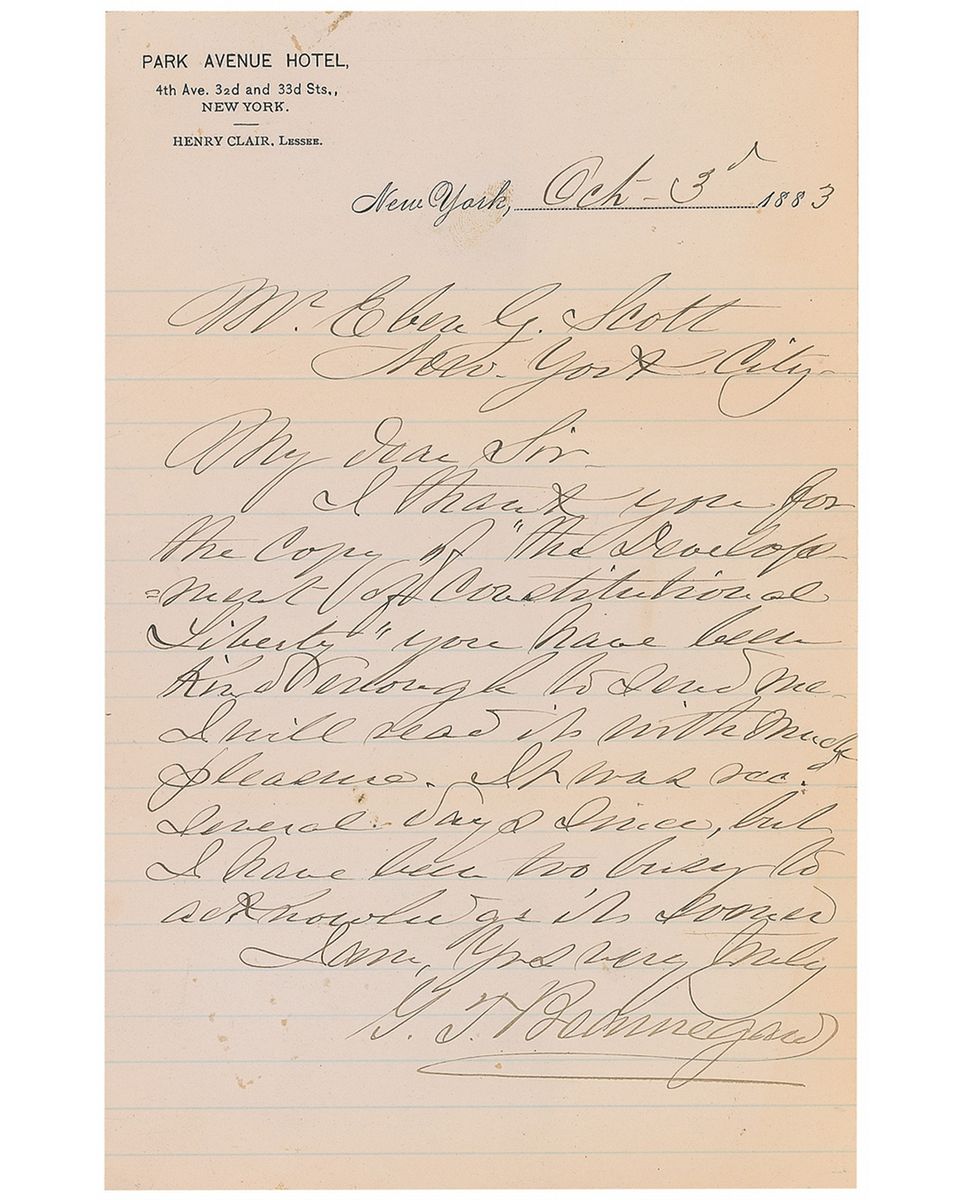 PARK AVENUE HOTEL,
4th Ave. 32d and 33d Sts.,
NEW YORK.
HENRY CLAIR, LESSEE.
New York, Oct - 3d 1883
Mr. Eben G. Scott
New York City -
My dear Sir -
I thank you for
the Copy of "the Develop-
=ment of Constitutional
Liberty" you have been
Kind enough to send me -
I will read it with much
pleasure. It was rec.d
several days since, but
I have been too busy to
acknowledge it sooner
I am, Yrs very truly
G. T. Beauregard